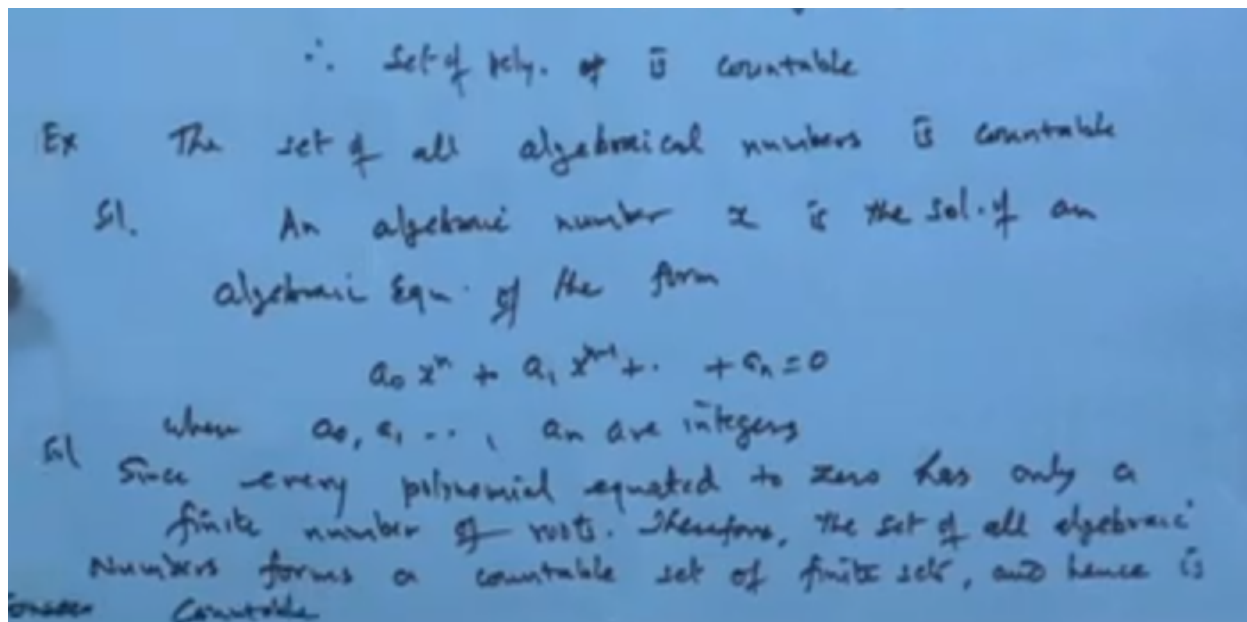 ∴ set of poly. is countable
Ex The set of all algebraical numbers is countable
Sl. An algebraic number x is the sol. of an
algebraic Equ. of the form
a₀ xⁿ + a₁ xⁿ⁻¹ + . . + aₙ = 0
where a₀, a₁ . . , aₙ are integers
Sol Since every polynomial equated to zero has only a
finite number of roots. Therefore, the set of all algebraic
Numbers forms a countable set of finite sets, and hence is
Countable